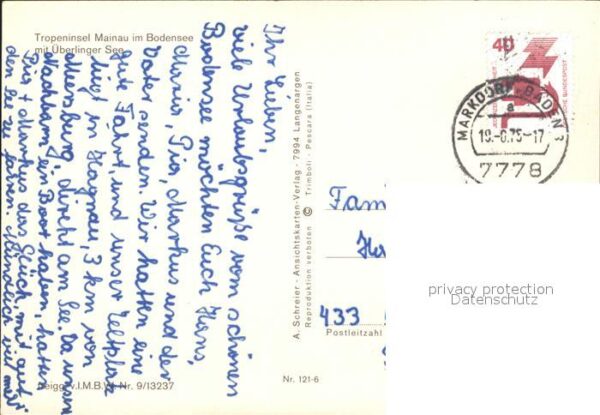 Tropeninsel Mainau im Bodensee
mit Überlinger See
Ihr Lieben,
viele Urlaubsgrüße vom schönen
Bodensee möchten Euch Hans,
Maria, Pia, Markus und der
Vater senden. Wir hatten eine
gute Fahrt, und unser Zeltplatz
liegt in Hagnau, 3 km von
Meersburg, direkt am See. Da unsere
Nachbarn ein Boot haben, hatten
Pia + Markus das Glück, mit auf
den See zu fahren. Mündlich viel mehr
Beigg.v.I.M.B.W. Nr. 9/13237
Nr. 121-6
A. Schreier - Ansichtskarten-Verlag - 7994 Langenargen
Reproduktion verboten © Trimboli - Pescara (Italia)
40
DEUTSCHE BUNDESPOST
MARKDORF, BADEN
a
-17
7778
Fam
433
Postleitzahl
privacy protection
Datenschutz